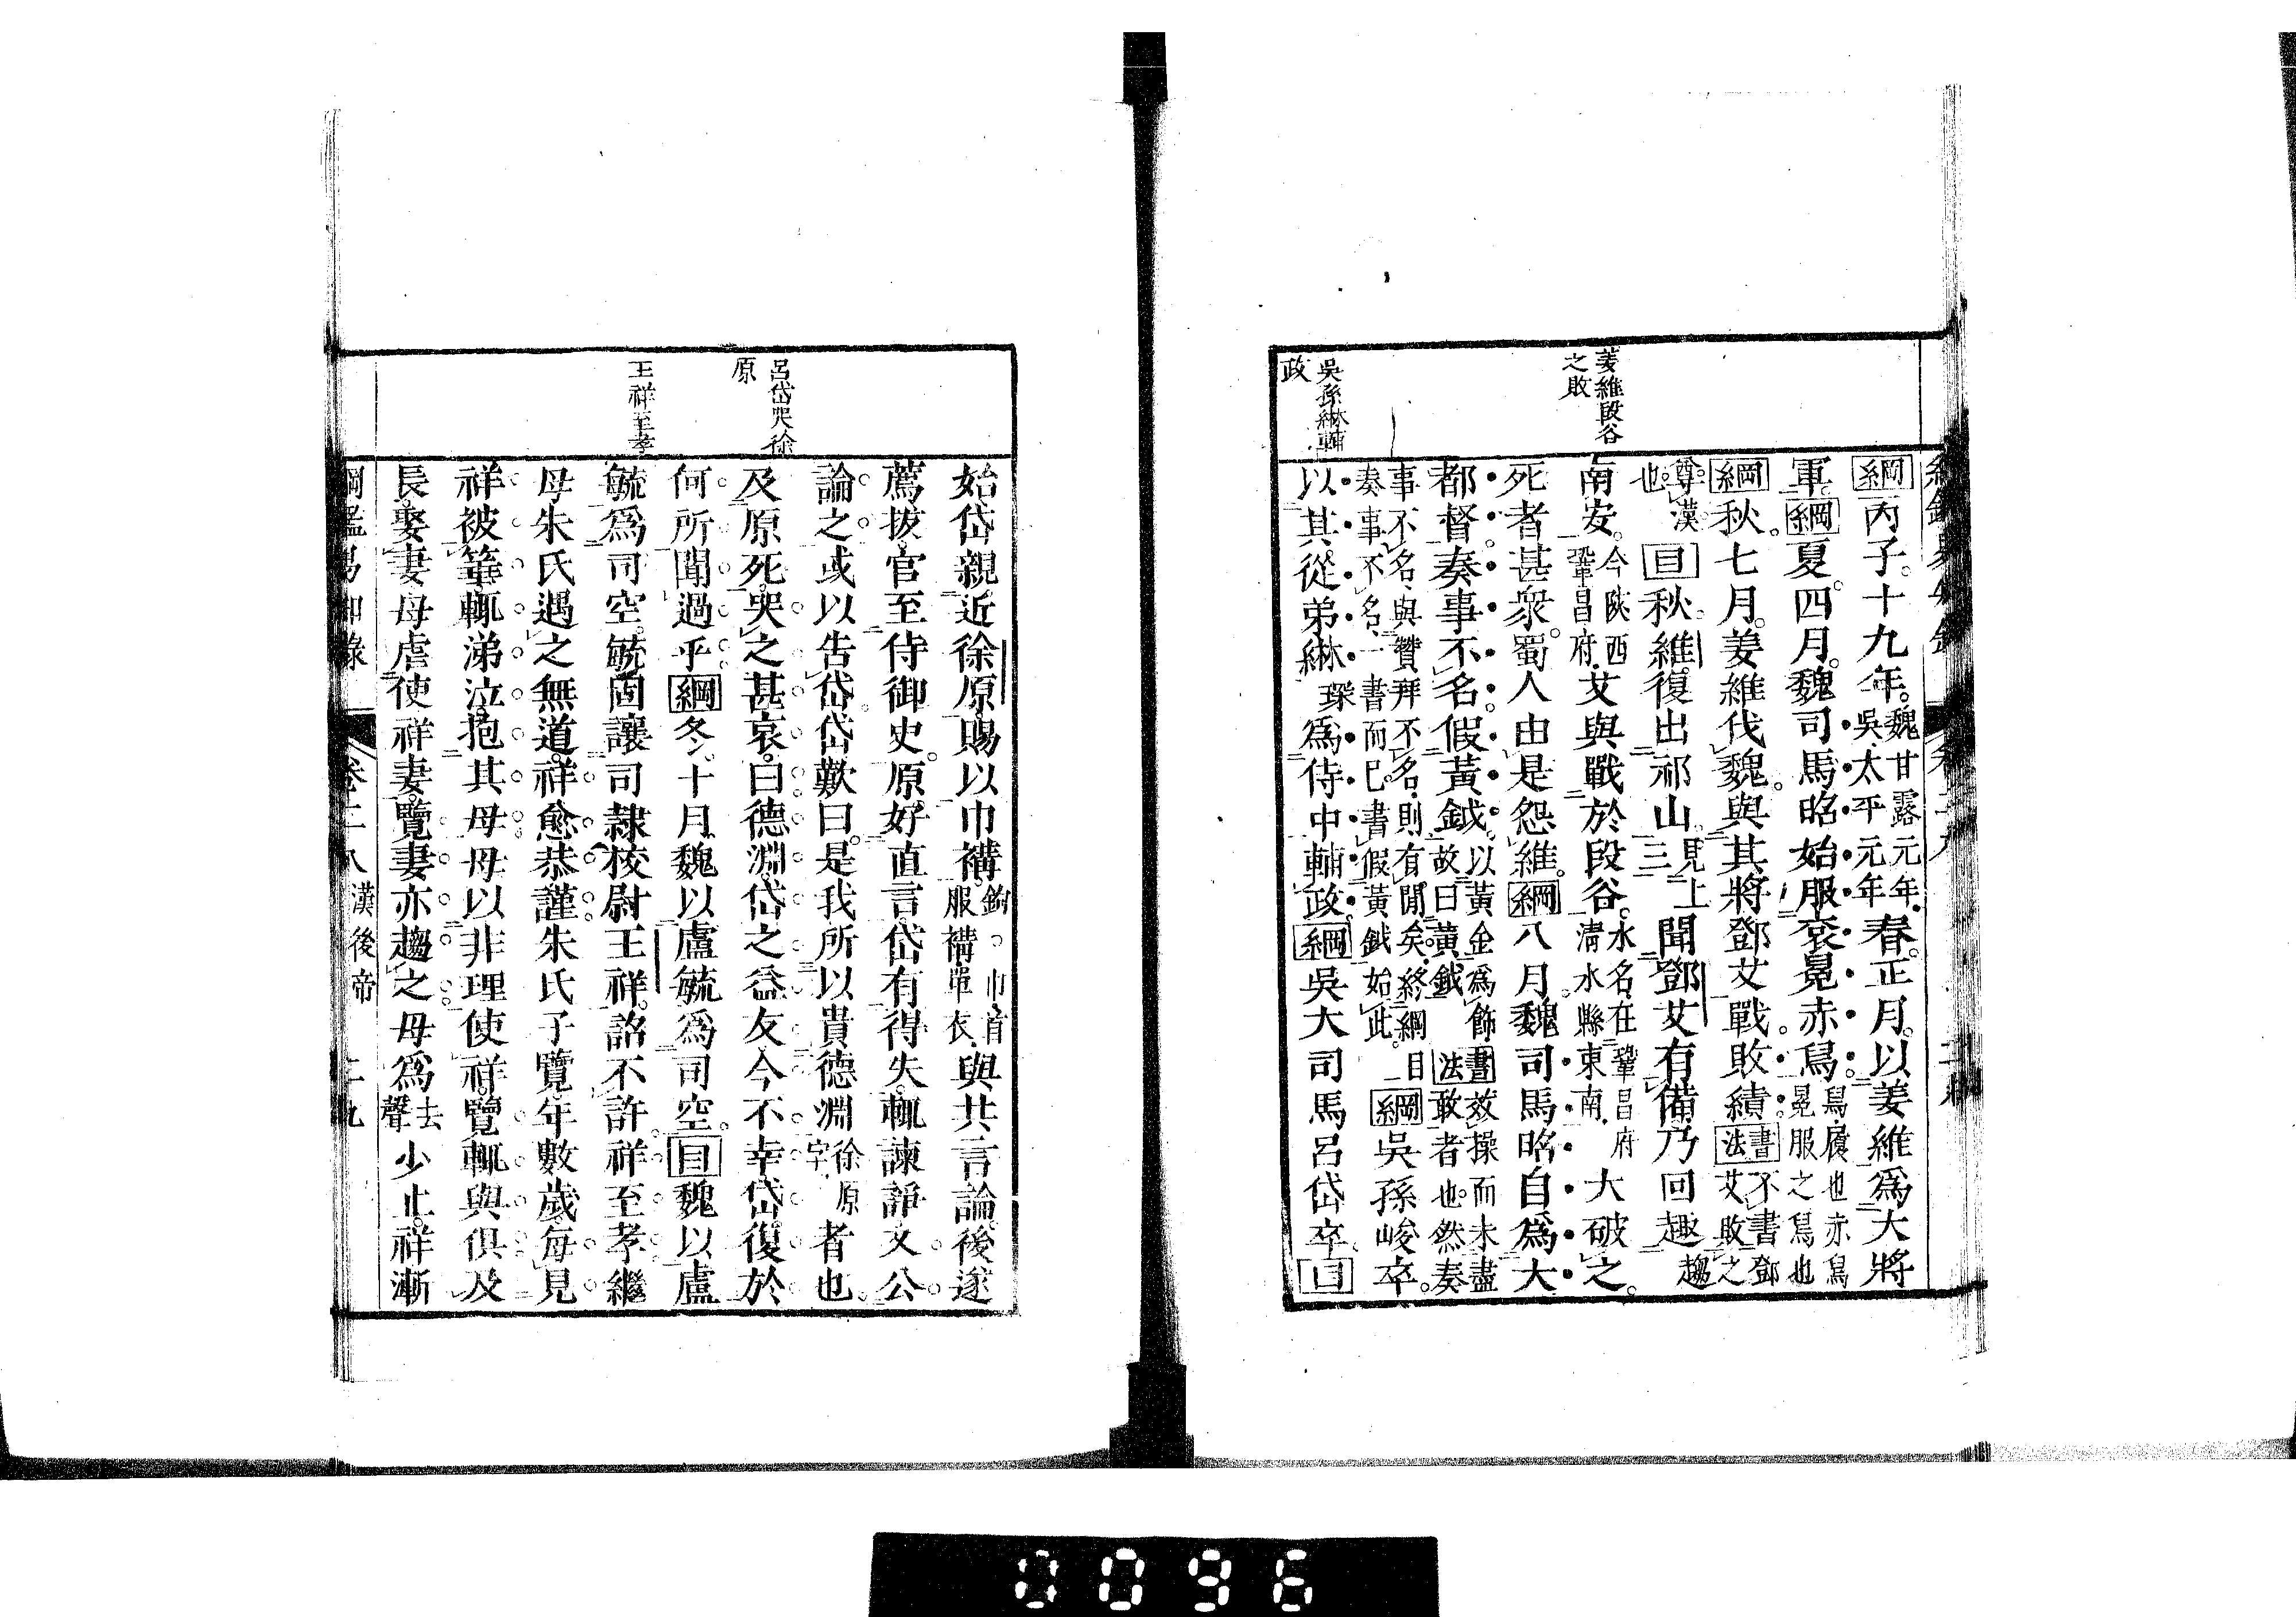 姜維段谷
之敗
吳孫綝輔
政
綱丙子十九年。魏甘露元年。吳太平元年。春。正月。以姜維爲大將
軍。綱夏。四月。魏司馬昭始服袞冕赤舄。舄履也赤舄冕服之舄也
綱秋。七月。姜維伐魏。與其將鄧艾戰。敗績。書法不書鄧艾敗之
尊漢也。目秋。維復出祁山。見上三聞鄧艾有備。乃回趣趨
南安。今陝西鞏昌府。艾與戰於段谷。水名在鞏昌府清水縣東南。大破之。
死者甚衆。蜀人由是怨維。綱八月。魏司馬昭自爲大
都督。奏事不名。假黃鉞。以黃金爲飾故曰黃鉞書法效操而未盡敢者也。然奏
事不名、與贊拜不名、則有閒矣。終綱目奏事不名、一書而已。書假黃鉞始此。綱吳孫峻卒。
以其從弟綝琛爲侍中輔政。綱吳大司馬呂岱卒。目
呂岱哭徐
原
王祥至孝
始岱親近徐原。賜以巾褠。鉤。巾首服褠單衣。與共言論。後遂
薦拔。官至侍御史。原好直言。岱有得失。輒諫諍。又公
論之。或以告岱。岱歎曰。是我所以貴德淵徐原字。者也。
及原死。哭之甚哀。曰德淵。岱之益友。今不幸。岱復於
何所聞過乎。綱冬。十月。魏以盧毓爲司空。目魏以盧
毓爲司空。毓固讓司隸校尉王祥。詔不許。祥至孝。繼
母朱氏遇之無道。祥愈恭謹。朱氏子覽。年數歲。每見
祥被箠。輒涕泣。抱其母。母以非理使祥。覽輒與俱。及
長。娶妻。母虐使祥妻。覽妻亦趨之。母爲去聲少止。祥漸
綱鑑易知錄 卷二八 漢後帝 二九